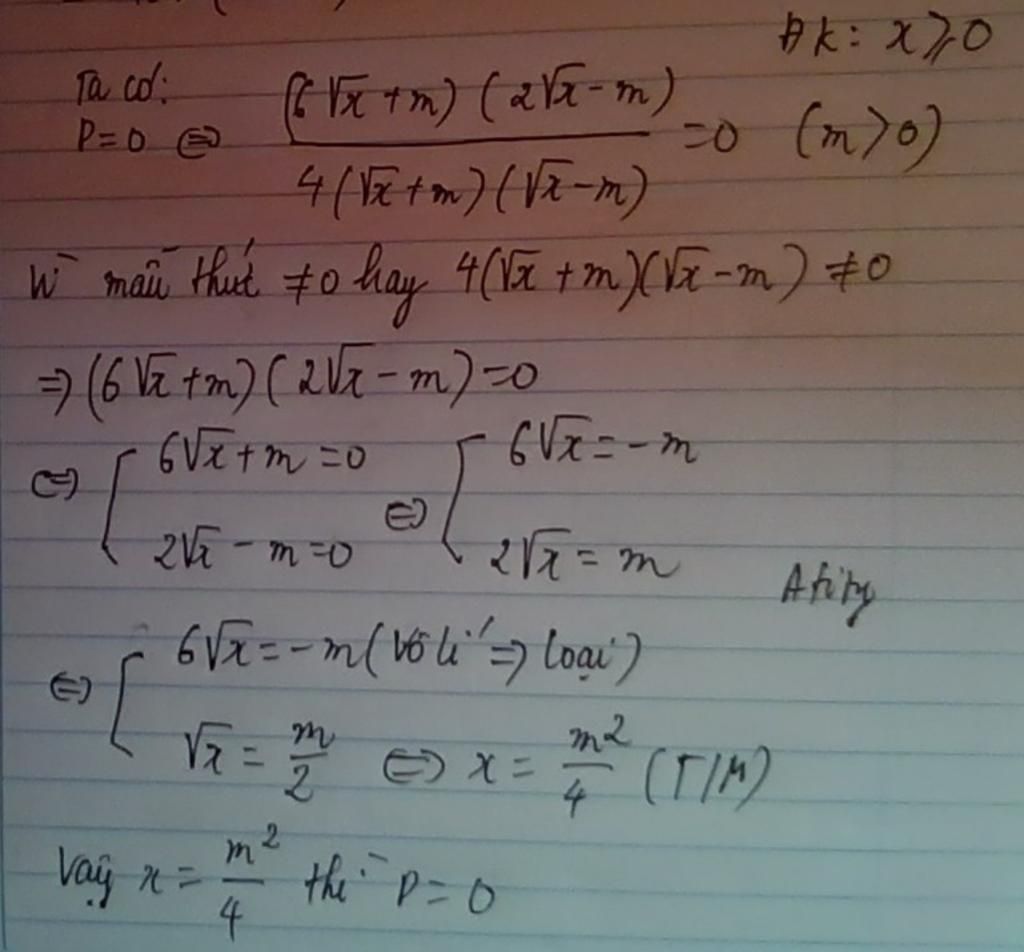 Đk: x ≥ 0
Ta có:
P=0 ⇔ (6√x +m) (2√x - m) / 4(√x +m)(√x -m) =0 (m>0)
Vì mẫu thức ≠0 hay 4(√x +m)(√x -m) ≠0
⇒ (6√x +m)(2√x - m)=0
⇔ [ 6√x +m =0 ⇔ [ 6√x = -m
2√x - m =0 2√x = m
⇔ [ 6√x = -m (vô lí ⇒ loại)
√x = m/2 ⇔ x = m²/4 (T/M)
Vậy x = m²/4 thì P = 0